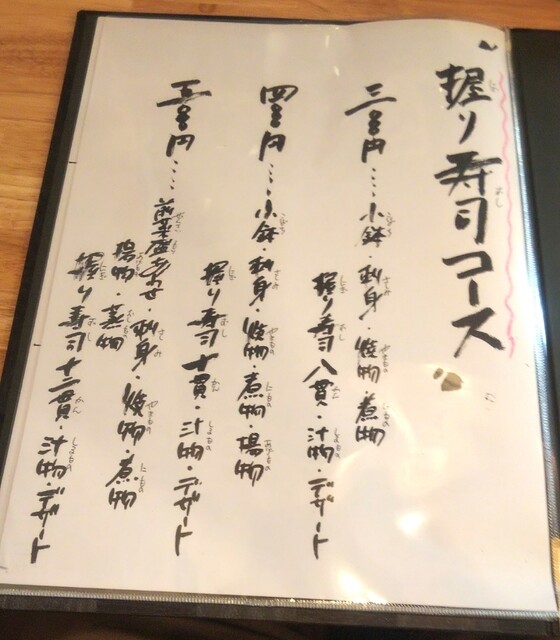 握り寿司コース
三〇〇〇円…小鉢・刺身・焼物・煮物
握り寿司八貫・汁物・デザート
四〇〇〇円…小鉢・刺身・焼物・煮物・揚物
握り寿司十貫・汁物・デザート
五〇〇〇円…前菜盛合せ・刺身・焼物・煮物
揚物・蒸物
握り寿司十二貫・汁物・デザート